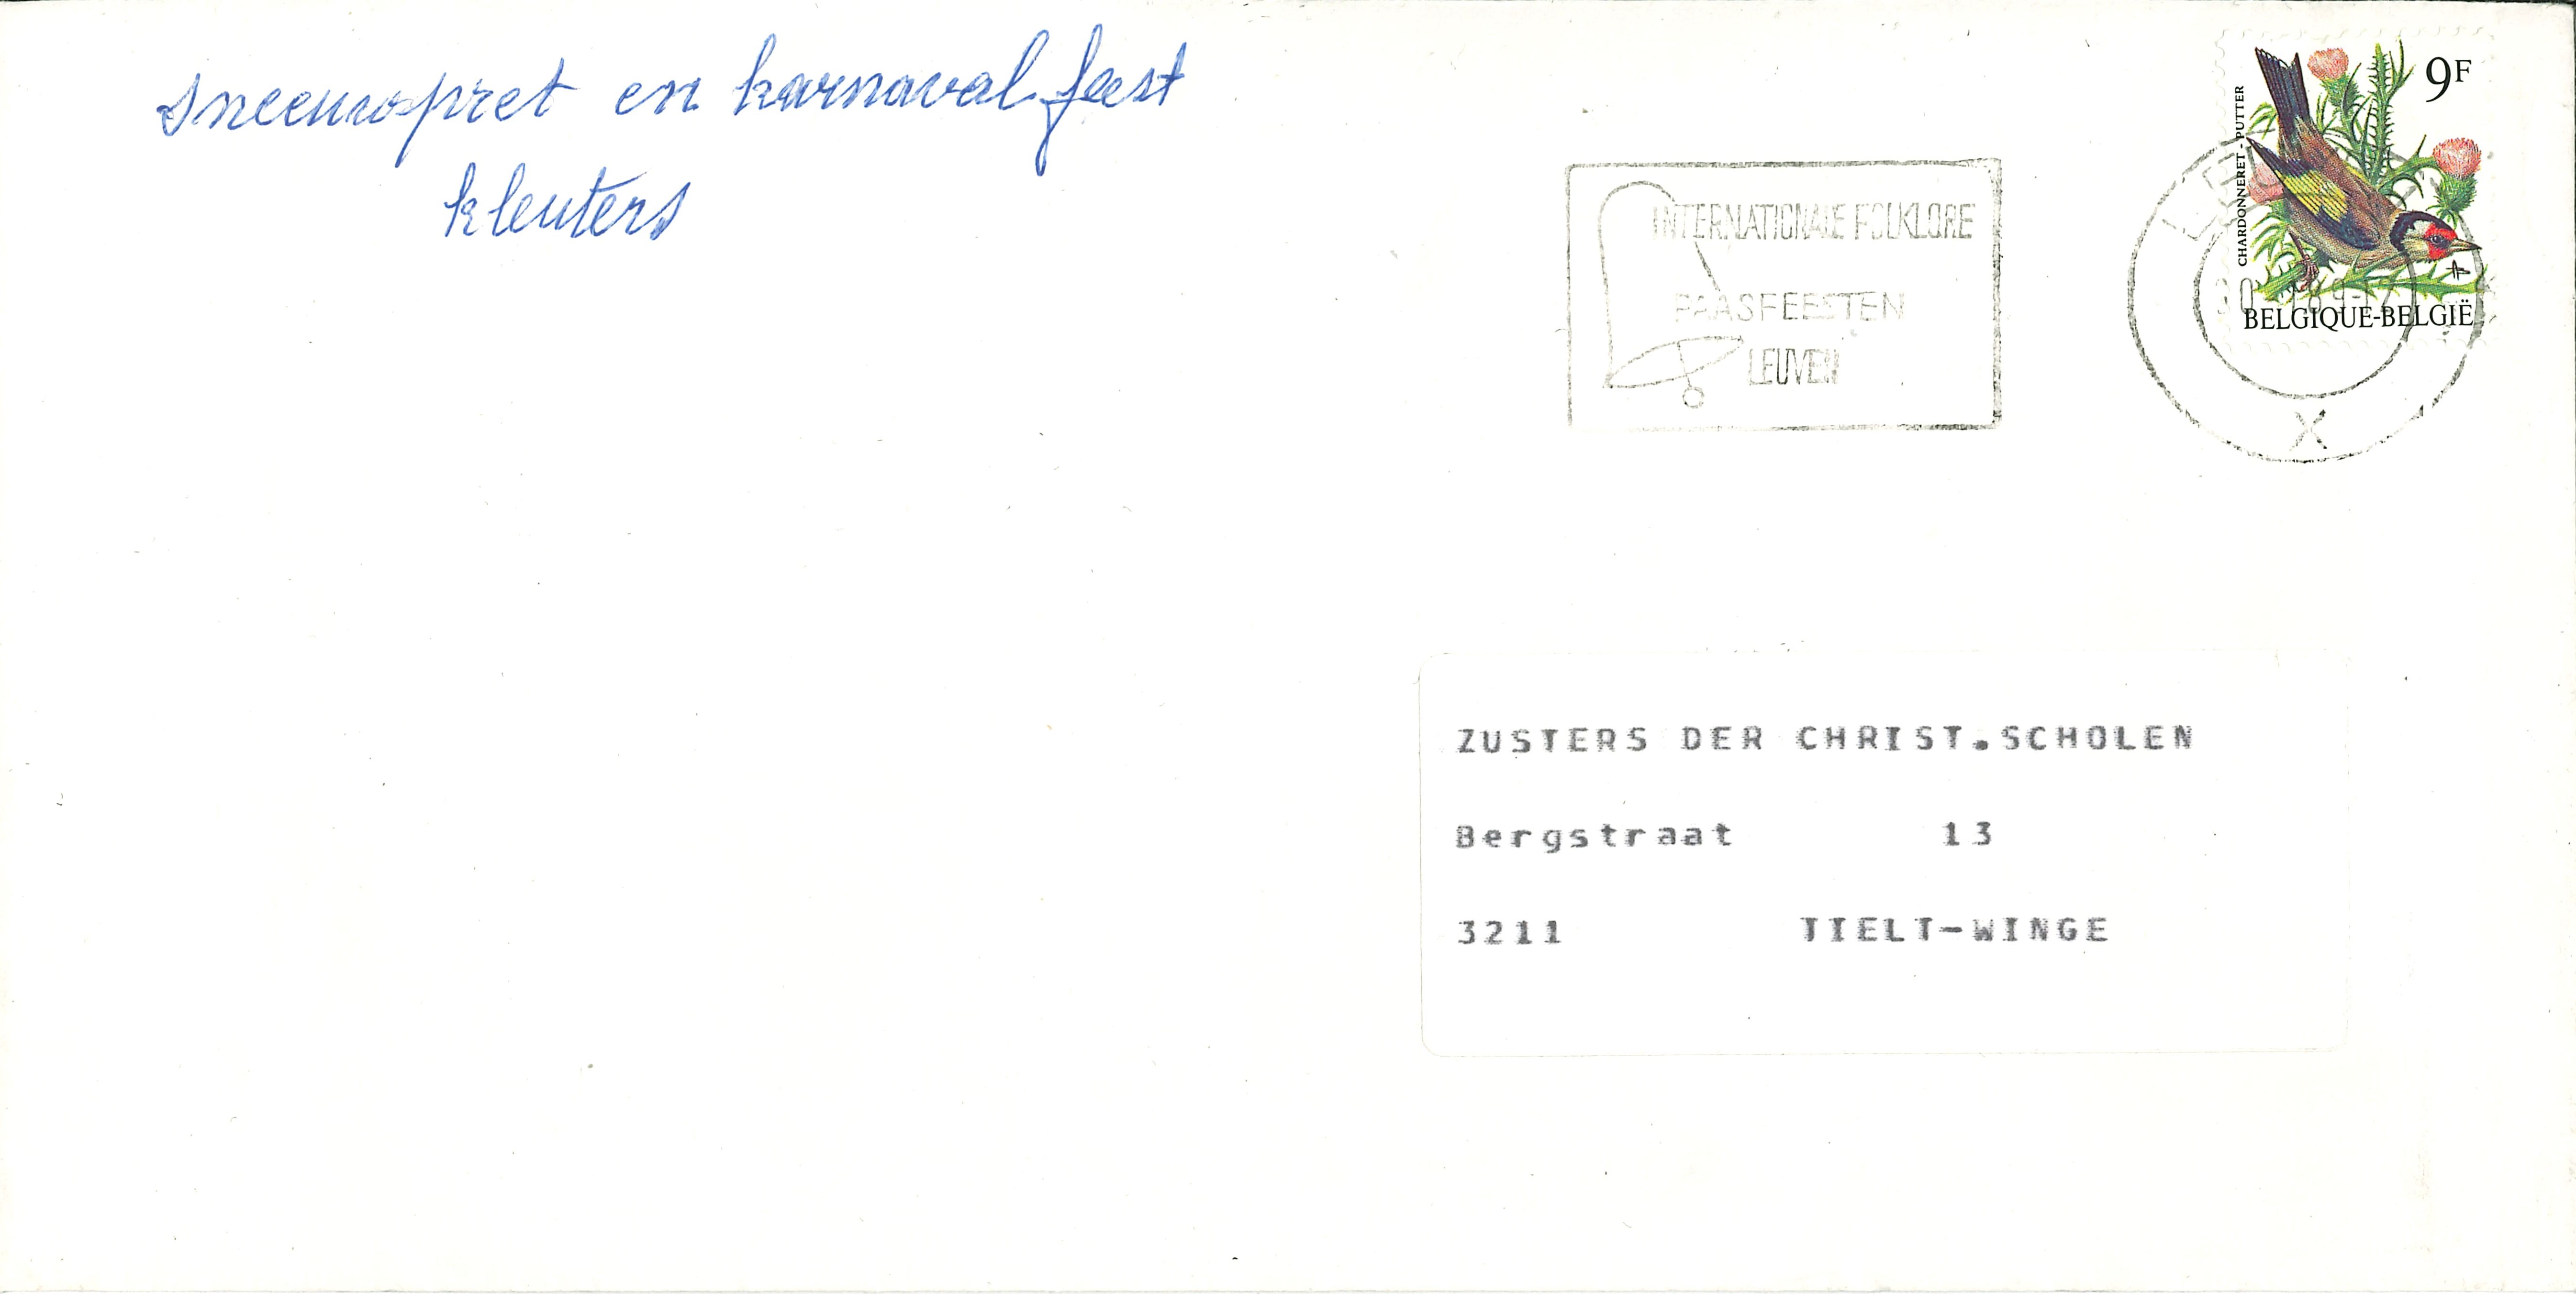 sneeuwpret en karnaval feest
kleuters
INTERNATIONALE FOLKLORE
PAASFEESTEN
LEUVEN
9F
CHARDONNERET - PUTTER
BELGIQUE-BELGIË
X
ZUSTERS DER CHRIST.SCHOLEN
Bergstraat 13
3211 TIELT-WINGE